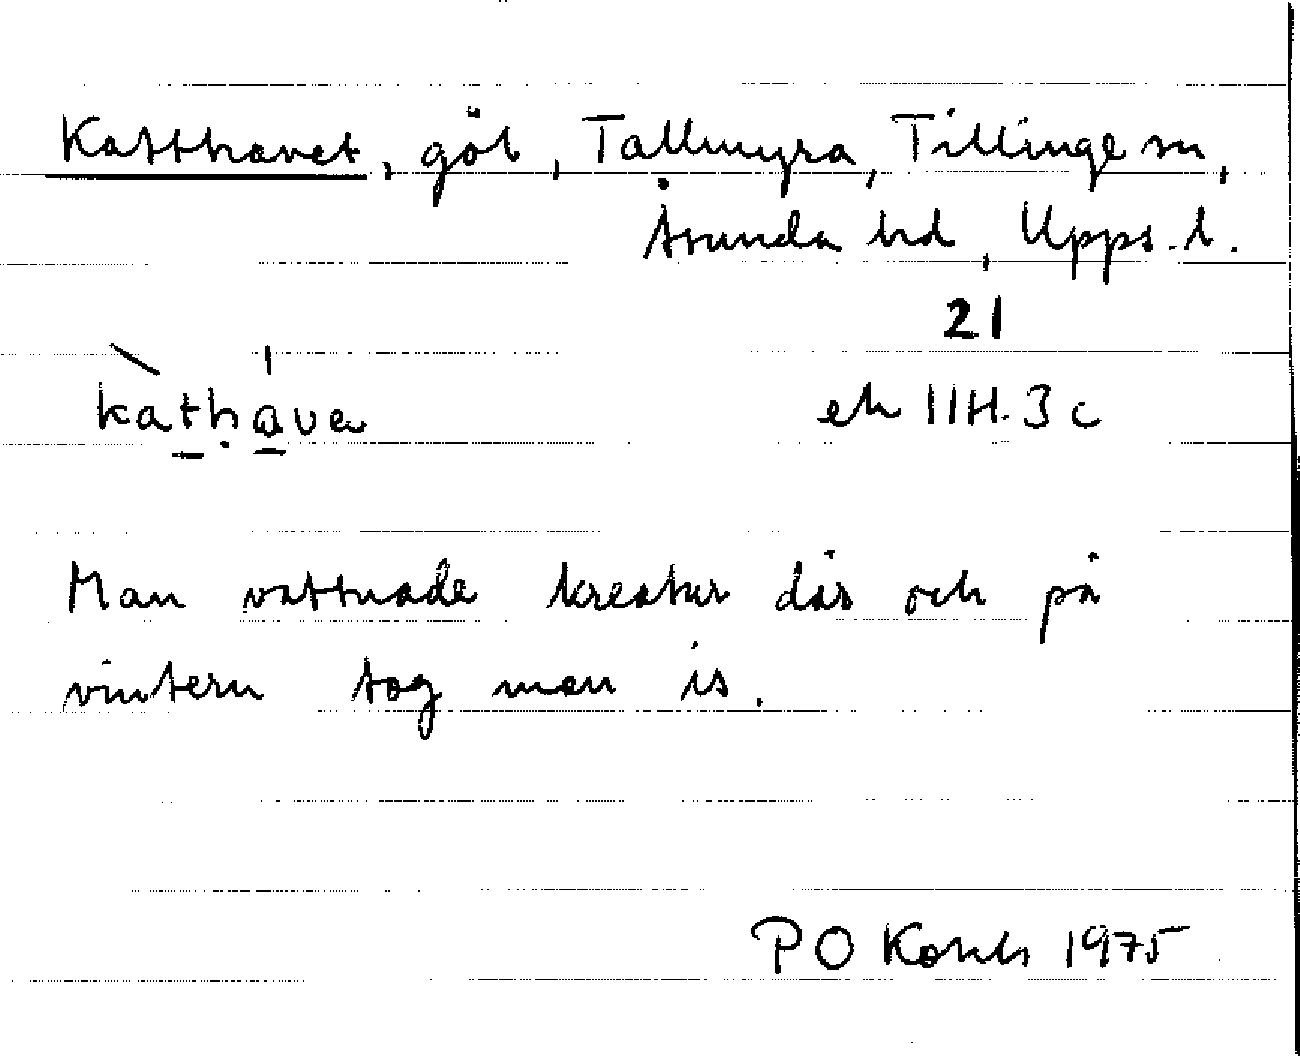 Katthavet, göl, Tallmyra, Tillinge sn,
Åsunda hd, Upps. l.
21
kathave
ek 11H. 3c
Man vattnade kreatur där och på
vintern tog man is.
PO 1975